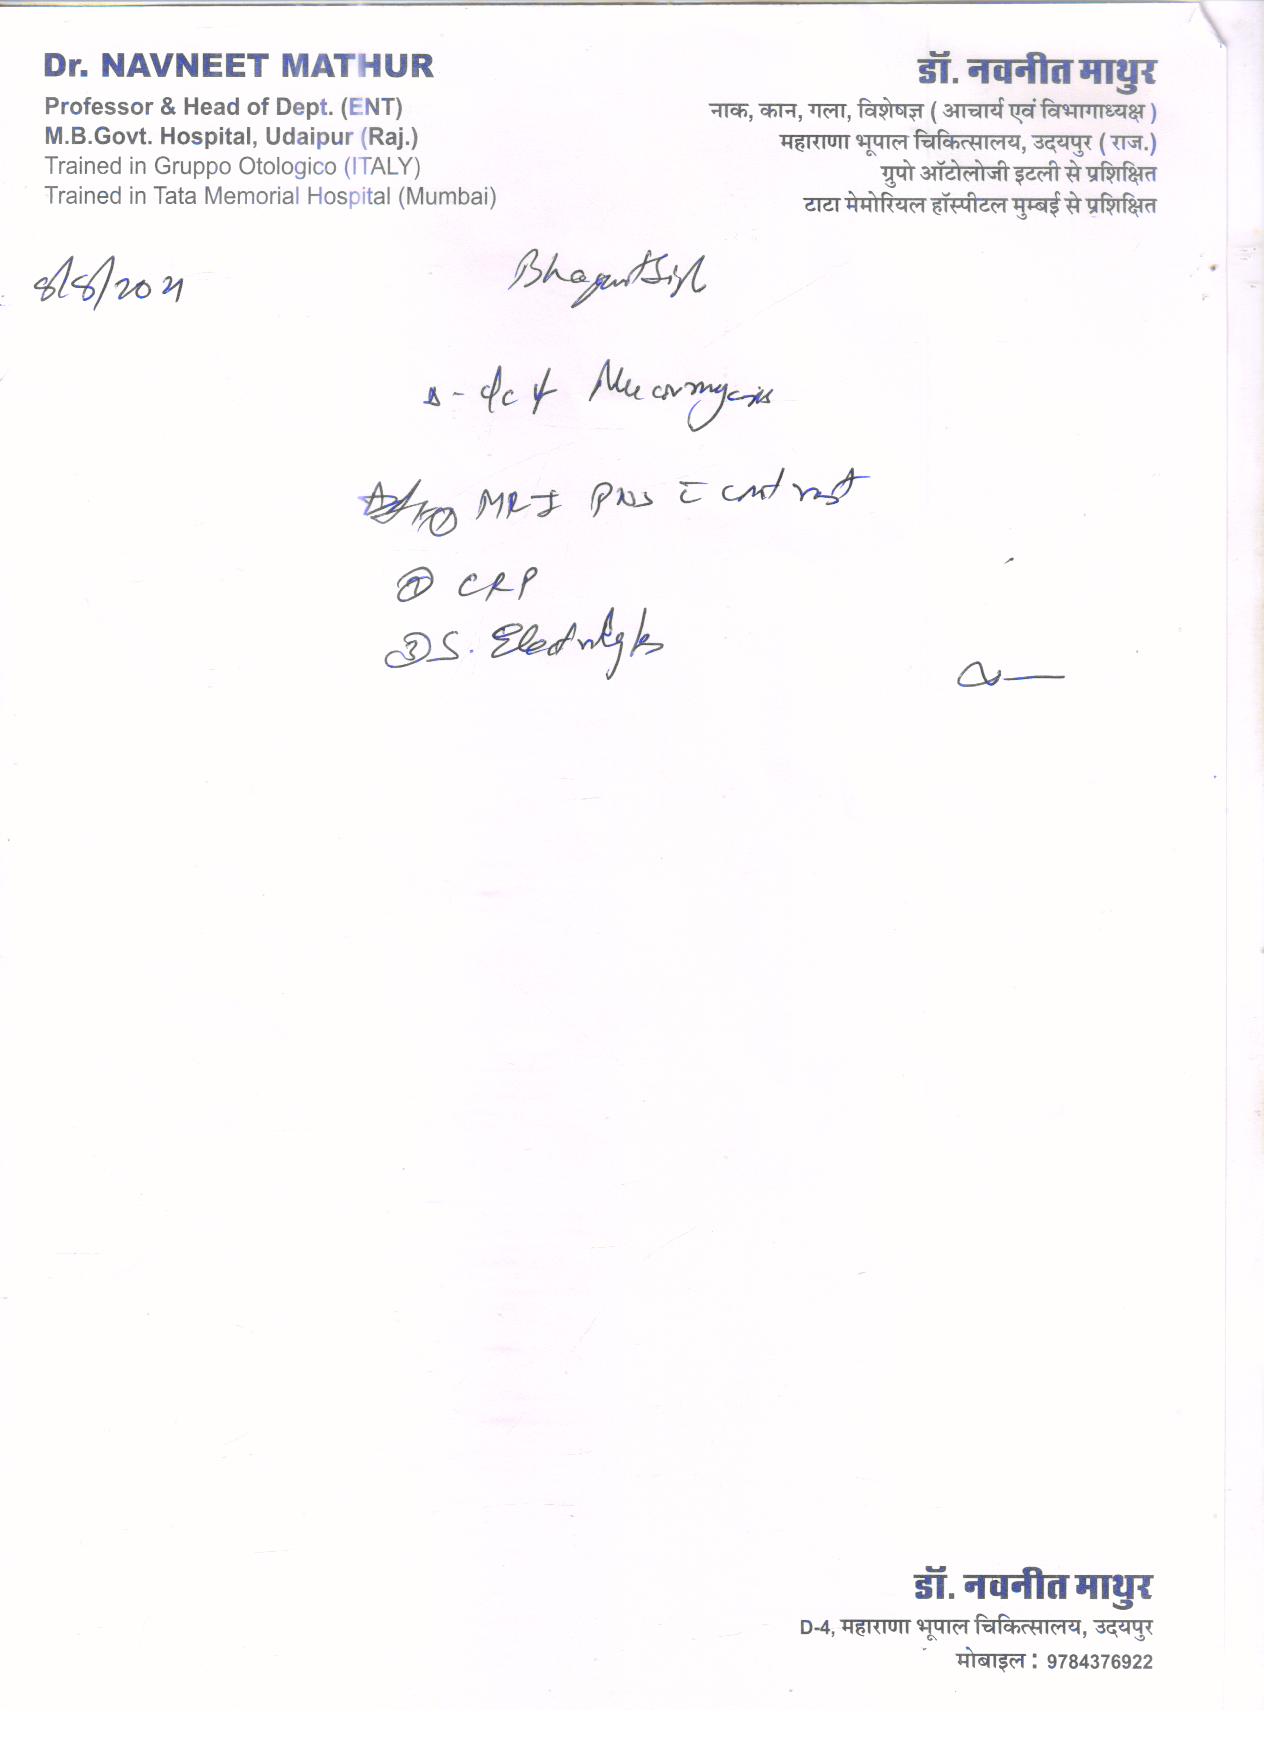 Dr. NAVNEET MATHUR
Professor & Head of Dept. (ENT)
M.B.Govt. Hospital, Udaipur (Raj.)
Trained in Gruppo Otologico (ITALY)
Trained in Tata Memorial Hospital (Mumbai)
डॉ. नवनीत माथुर
नाक, कान, गला, विशेषज्ञ ( आचार्य एवं विभागाध्यक्ष )
महाराणा भूपाल चिकित्सालय, उदयपुर ( राज.)
ग्रुपो ऑटोलोजी इटली से प्रशिक्षित
टाटा मेमोरियल हॉस्पीटल मुम्बई से प्रशिक्षित
8/8/2021
Mucormycosis
① MRI PNS c̄ contrast
② CRP
③ S. Electrolytes
डॉ. नवनीत माथुर
D-4, महाराणा भूपाल चिकित्सालय, उदयपुर
मोबाइल : 9784376922